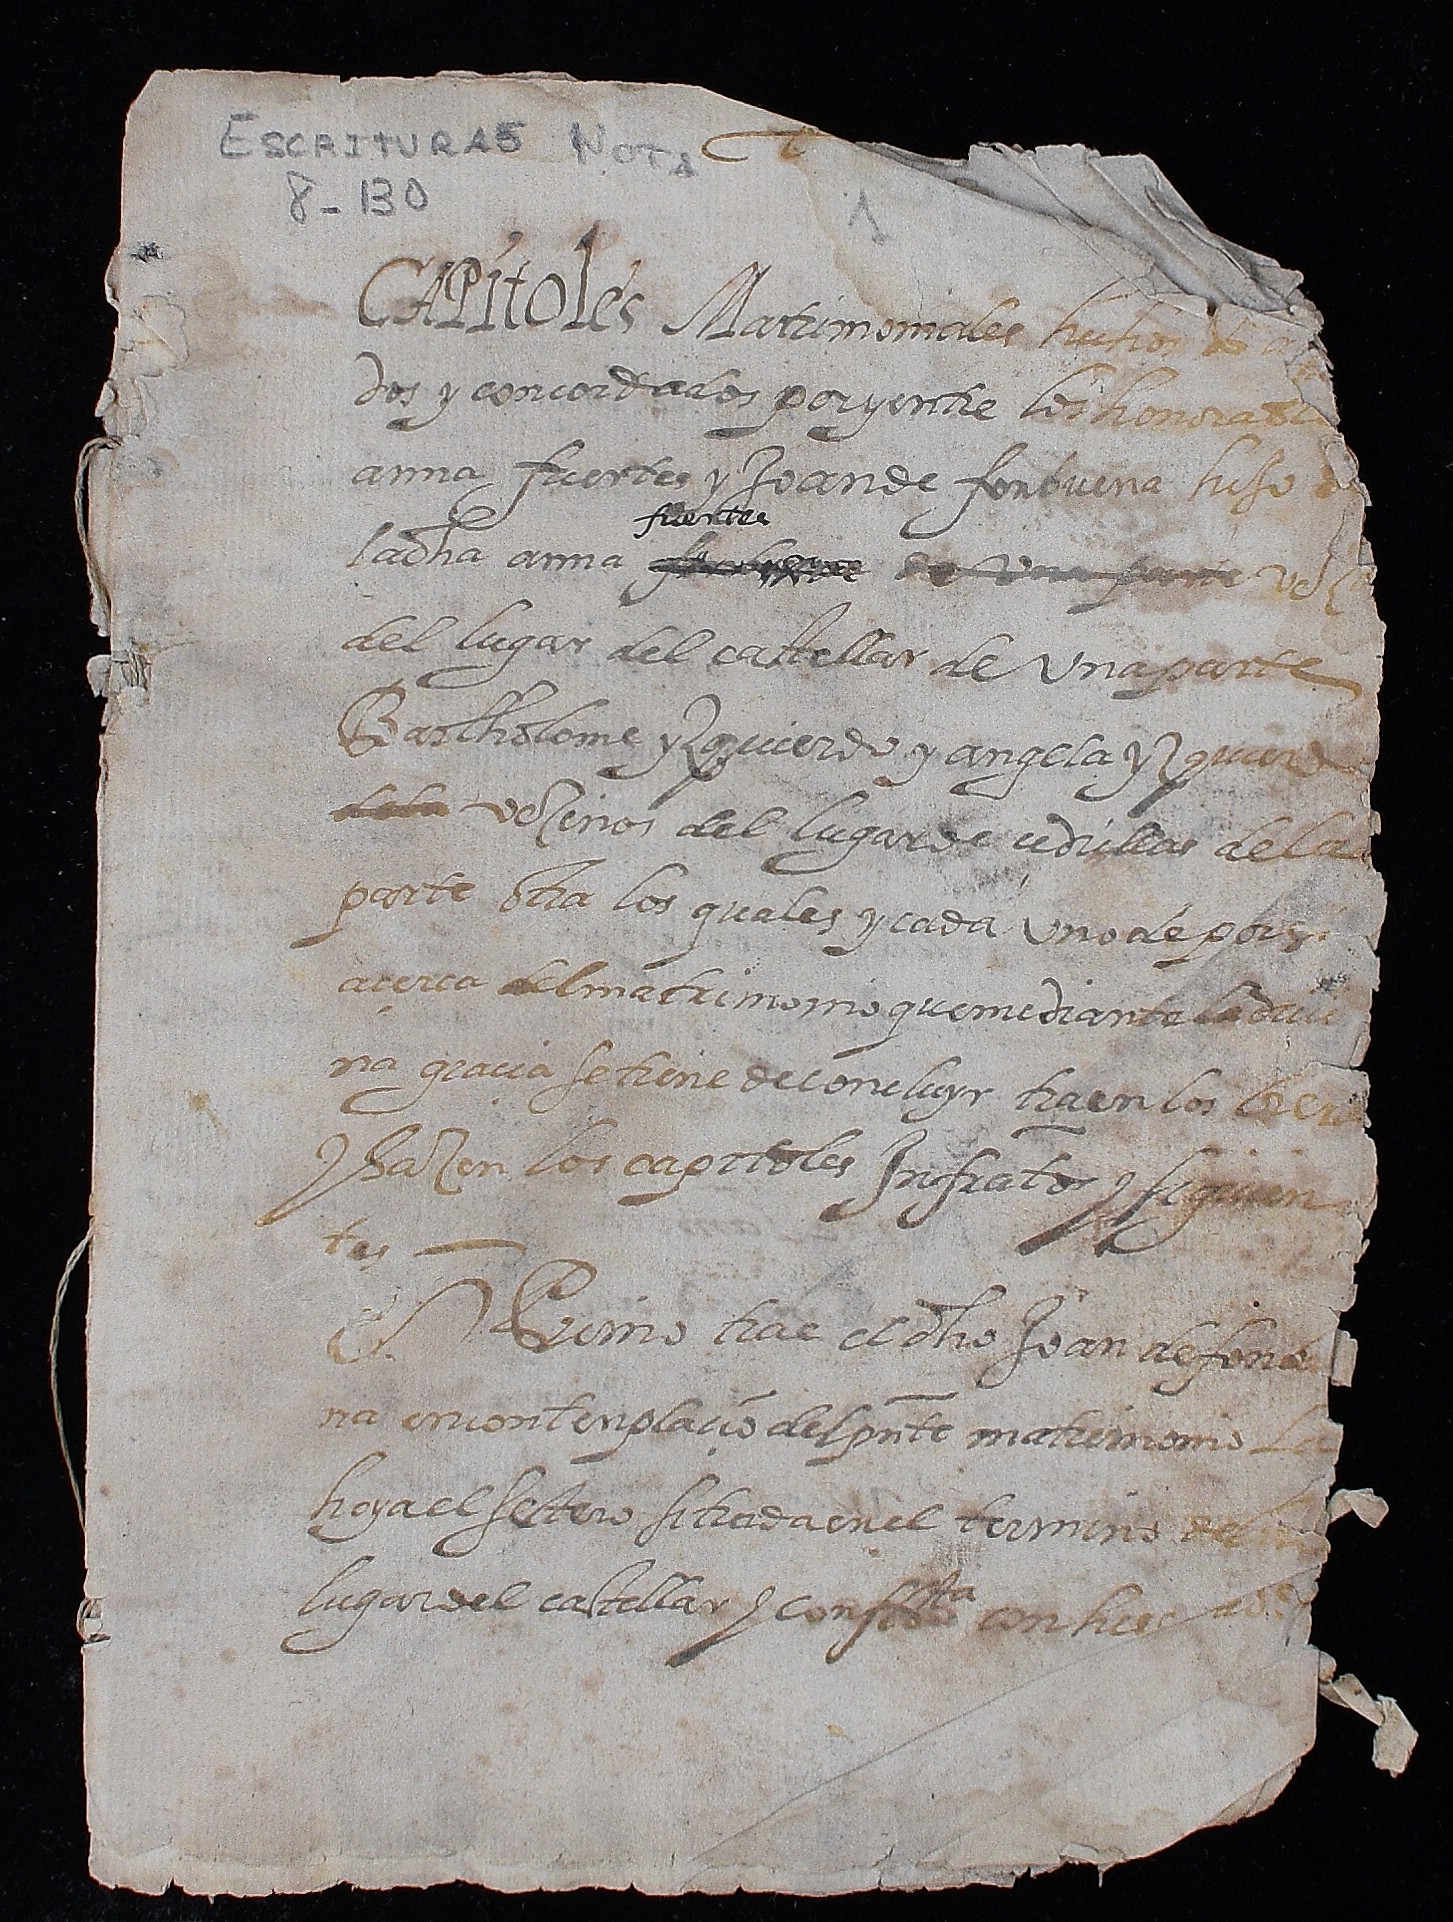 ESCRITURAS NOTA
8-130
1
CAPItolés Matrimoniales hechos
dos y concordados por y entre los honorabl
anna fuertes y Joan de fonbuena hijo de
fuertes
la dha anna de una parte vez
del lugar del castellar de una parte
Bartholome yzquierdo y angela yzquierd
vezinos del lugar de cedrillas de la
parte otra los quales y cada uno de por si
açerca del matrimonio que mediante la divi
na gracia se tiene de concluyr traen los bene
y hazen los capitoles Infratos y siguien
tes
Primo trae el dho Joan de fonb
na en contenplaçio del pnte matrimonio La
hoya el sestero sitiada en el termino del
lugar del castellar y confronta con here